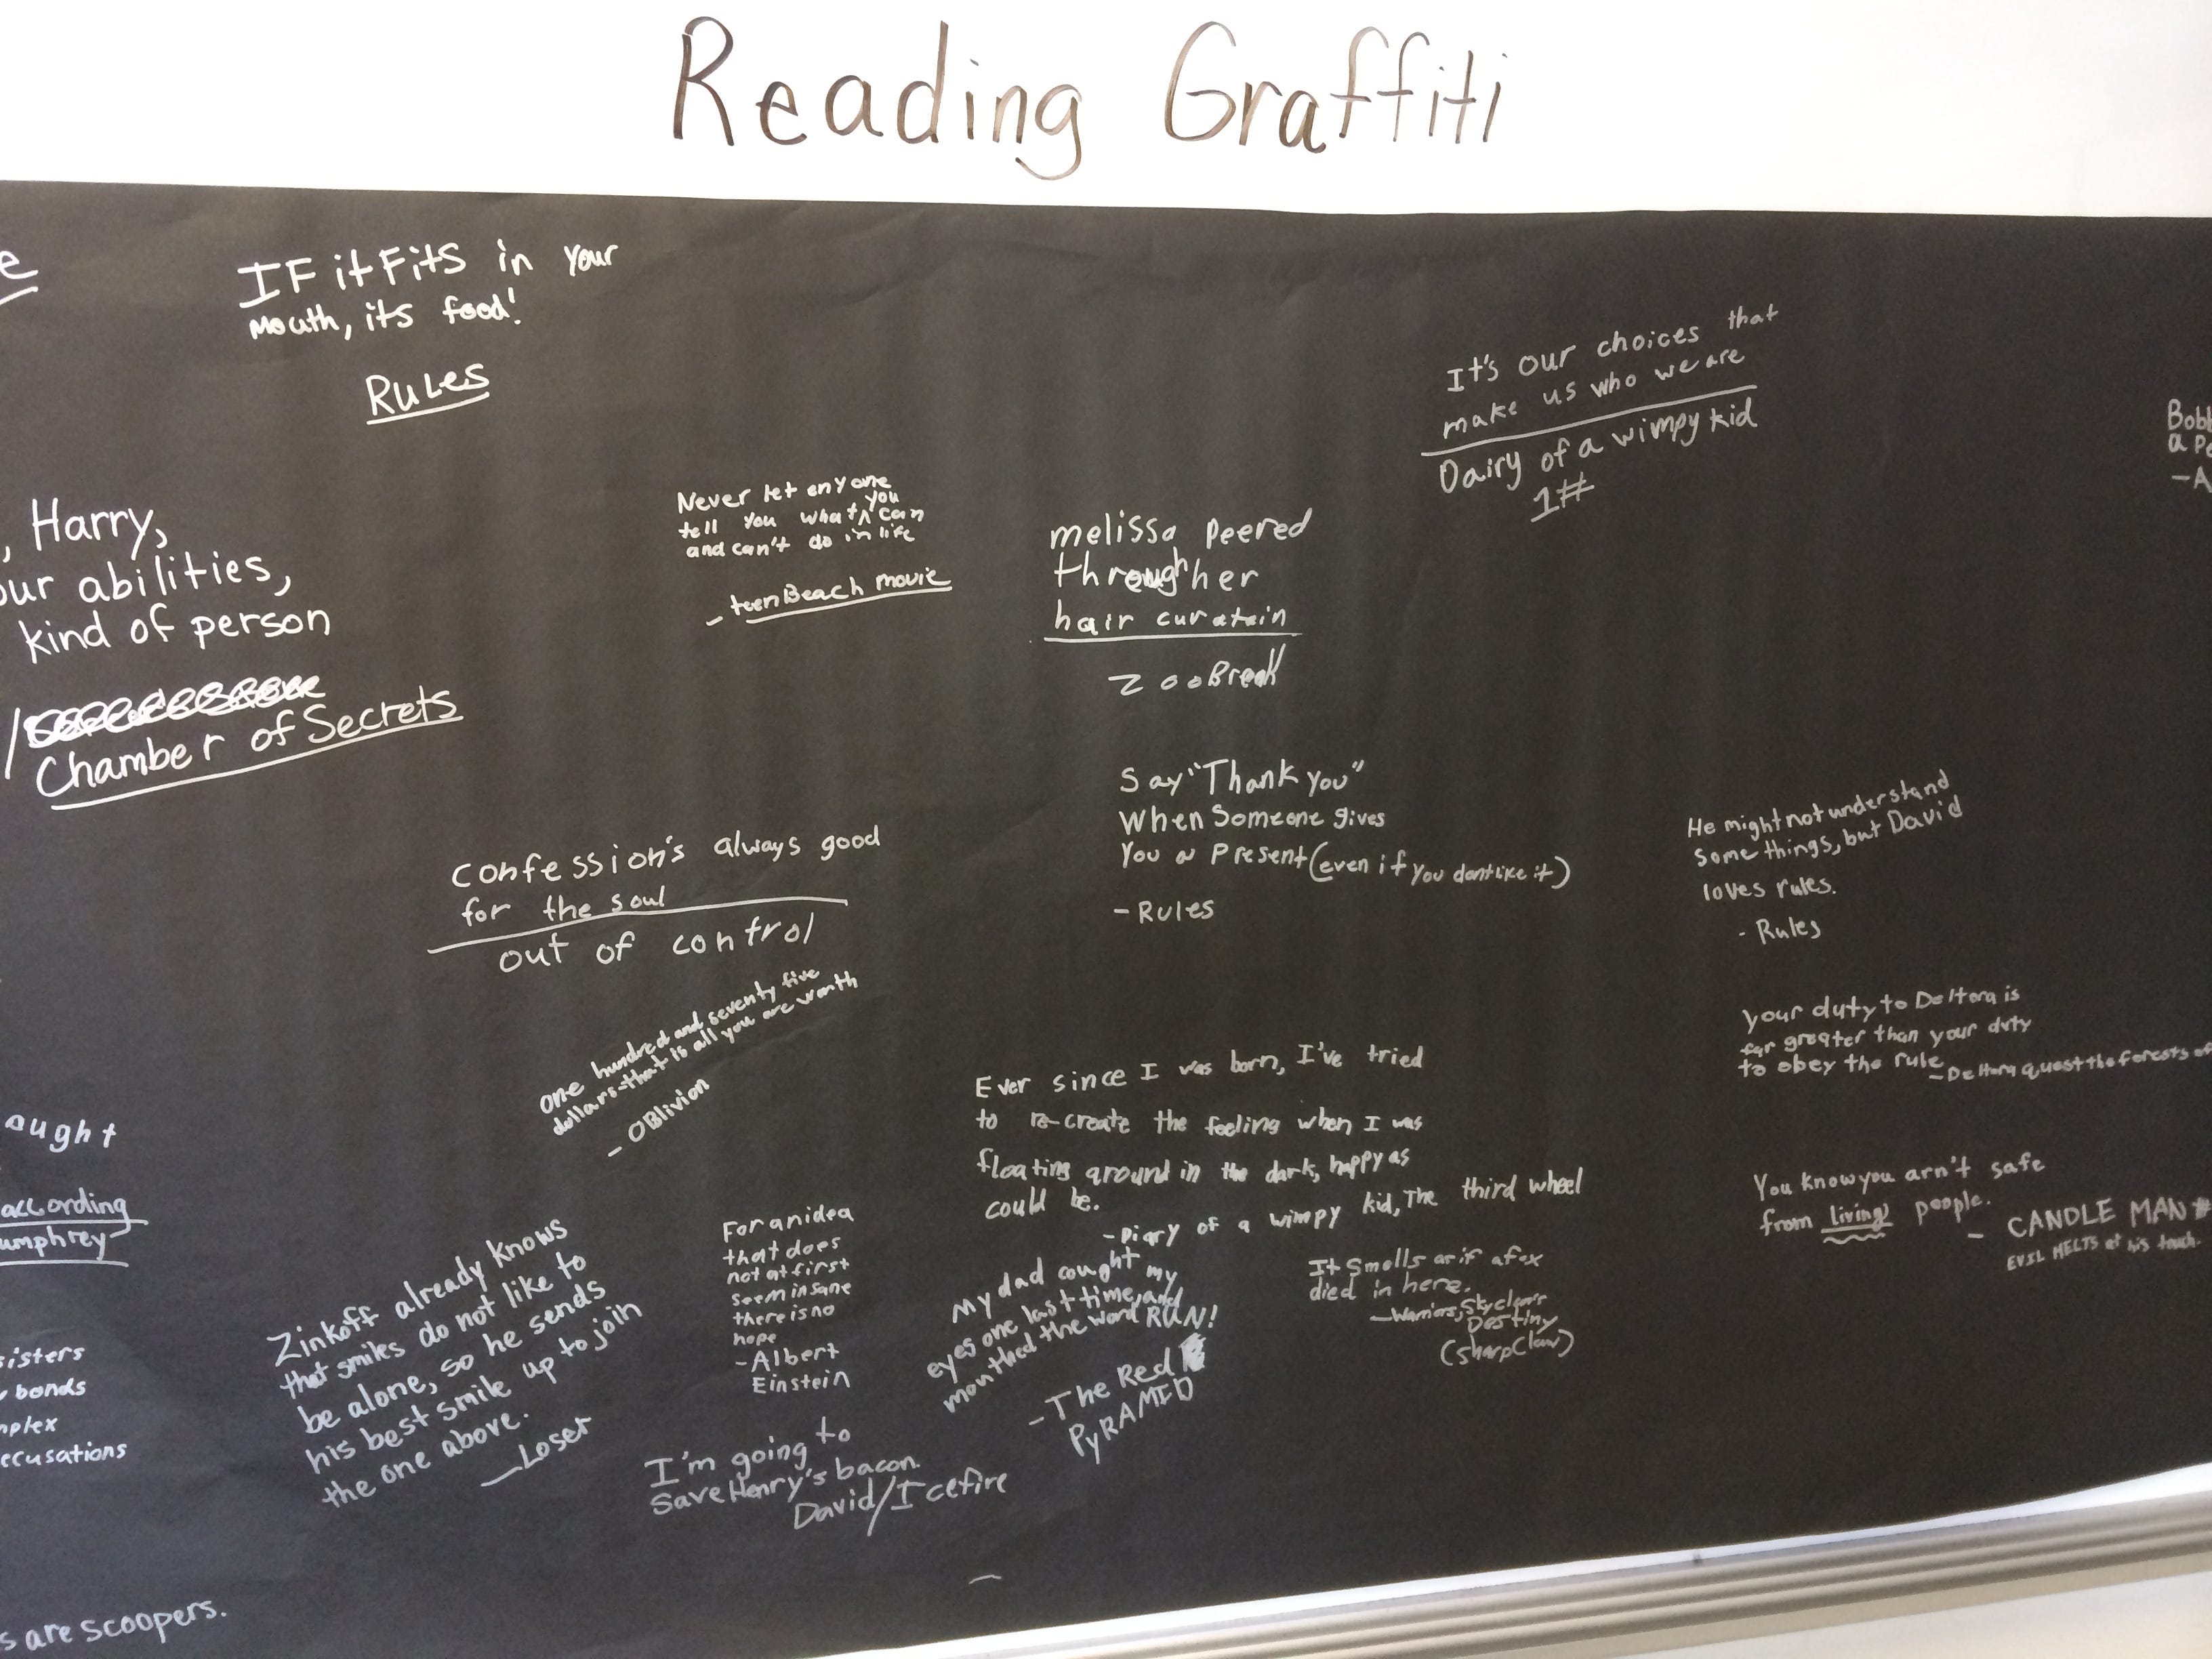 Reading Graffiti
e
IF it Fits in your
mouth, its food!
Rules
, Harry,
our abilities,
kind of person
Chamber of Secrets
Never let anyone
tell you what you can
and can't do in life
- teen Beach movie
melissa peered
through her
hair curatain
ZooBreak
It's our choices that
make us who we are
Dairy of a wimpy kid
1#
Bob
a
- A
Say "Thank you"
When Someone gives
You a Present (even if you dont like it)
- Rules
He might not understand
some things, but David
loves rules.
- Rules
Confession's always good
for the soul
out of control
one hundred and seventy five
dollars-that is all you are worth
- OBlivion
your duty to Deltora is
far greater than your duty
to obey the rule
- Deltora quest the forests of
Ever since I was born, I've tried
to re-create the feeling when I was
floating around in the dark, happy as
could be.
- Diary of a wimpy kid, The third wheel
You know you arn't safe
from living people.
- CANDLE MAN #
EVIL MELTS at his touch.
aught
according
umphrey
sisters
bonds
mplex
ccusations
Zinkoff already knows
that smiles do not like to
be alone, so he sends
his best smile up to join
the one above.
- Loser
For an idea
that does
not at first
seem insane
there is no
hope
- Albert
Einstein
My dad caught my
eyes one last time, and
mouthed the word RUN!
- The Red
PyRAMID
It Smells as if a fox
died in here.
- Warriors, Skyclan's
Destiny
(sharpClaw)
I'm going to
Save Henry's bacon.
David/Icefire
s are scoopers.